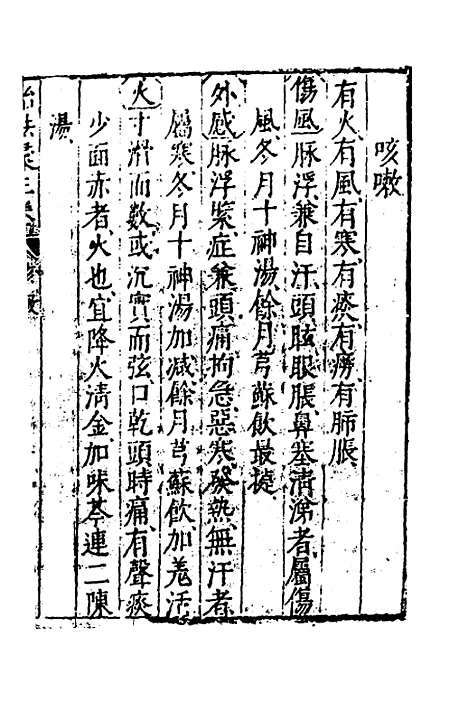 咳嗽
有火、有風、有寒、有痰、有癆、有肺脹、
傷風 脉浮、兼自汗、頭眩眼脹、鼻塞清涕者、屬傷
風、冬月十神湯、餘月芎蘇飲最㨗、
外感 脉浮緊、症兼頭痛拘急、惡寒發熱、無汗者、
屬寒、冬月十神湯加减、餘月芎蘇飲加羗活、
火 寸滑而数、或沉實而弦、口乾頭時痛、有聲痰
少面赤者、火也、宜降火清金、加味芩連二陳
湯、